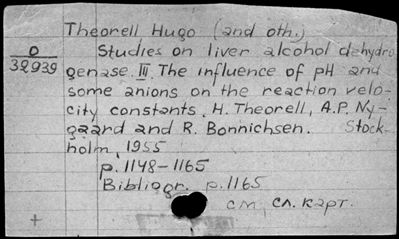 Theorell Hugo (and oth.)
O
32939
Studies on liver alcohol dehydro
genase. III. The influence of pH and
some anions on the reaction velo-
city constants. H. Theorell, A.P. Ny-
gaard and R. Bonnichsen. Stock-
holm, 1955
p. 1148-1165
Bibliogr. p. 1165
см. сл. карт.
+